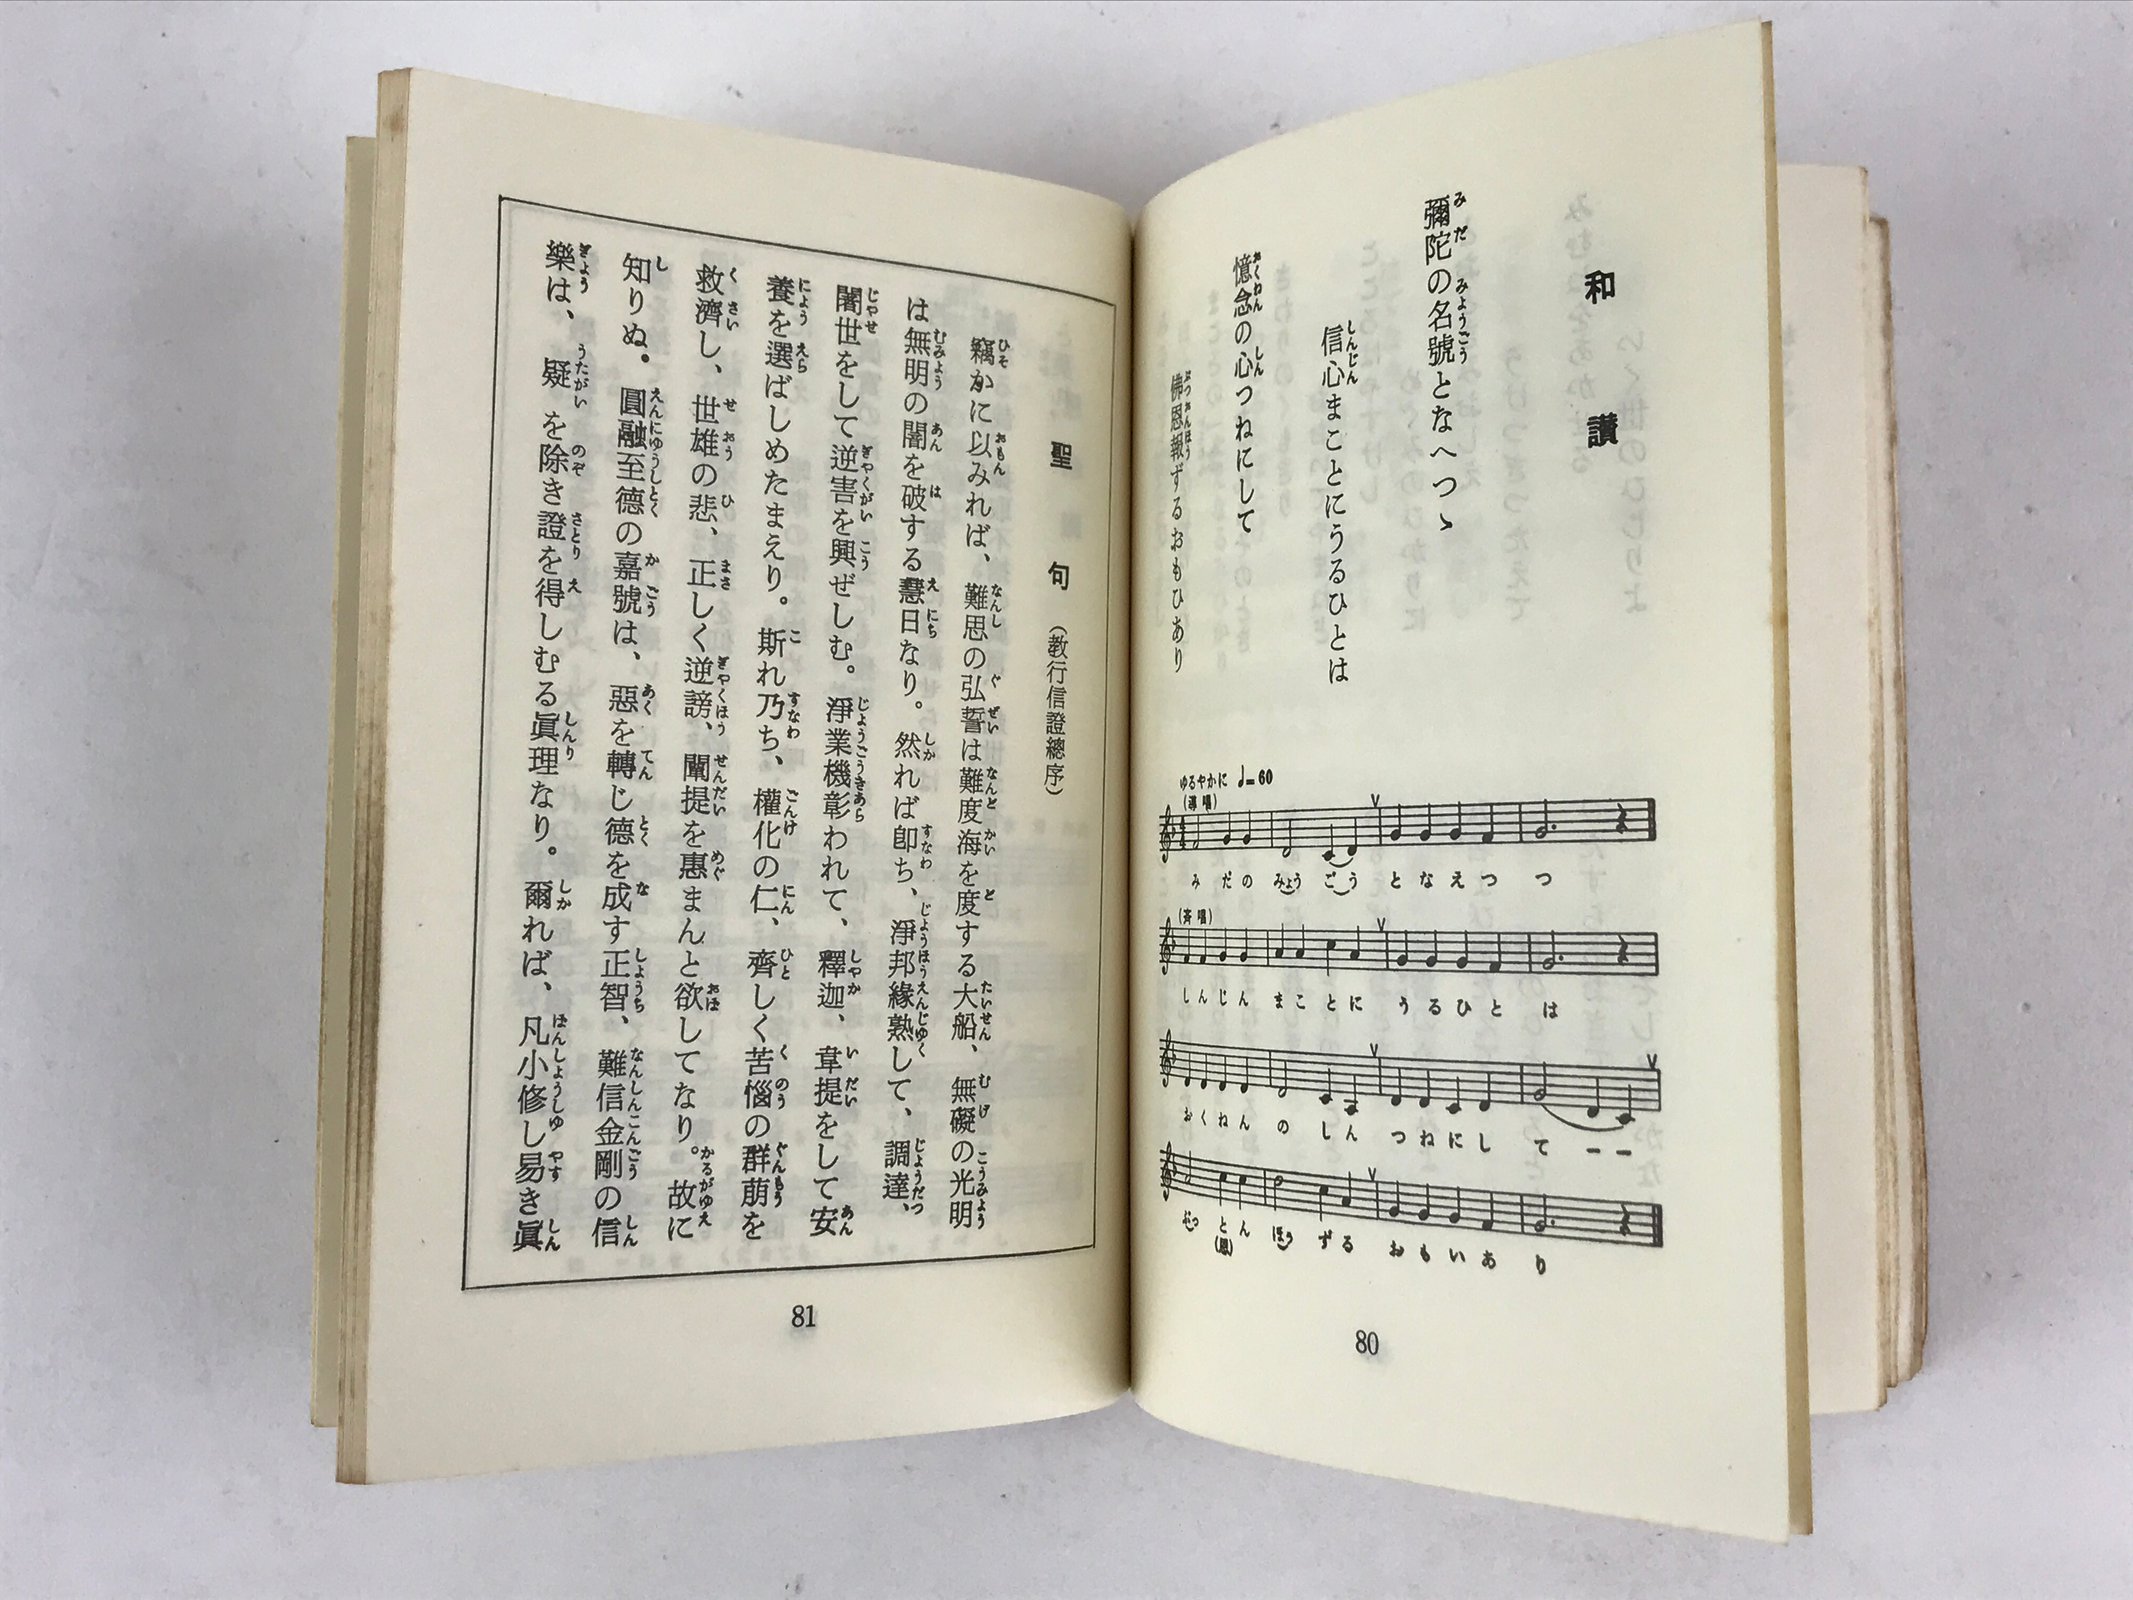 和讃
彌陀の名號となへつゝ
信心まことにうるひとは
憶念の心つねにして
佛恩報ずるおもひあり
ゆるやかに ♩=60
(導唱)
みだの みょうごう となえつ つ
(斉唱)
しんじん まことに うるひと は
おくねん の しん つねにし て ー ー
ぶつ とん ほう ずる おもいあ り
(恩)
80
聖句 (教行信證總序)
竊かに以みれば、難思の弘誓は難度海を度する大船、無礙の光明
は無明の闇を破する慧日なり。然れば卽ち、淨邦緣熟して、調達、
闍世をして逆害を興ぜしむ。淨業機彰われて、釋迦、韋提をして安
養を選ばしめたまえり。斯れ乃ち、權化の仁、齊しく苦惱の群萠を
救濟し、世雄の悲、正しく逆謗、闡提を惠まんと欲してなり。故に
知りぬ。圓融至德の嘉號は、惡を轉じ德を成す正智、難信金剛の信
樂は、疑を除き證を得しむる眞理なり。爾れば、凡小修し易き眞
81